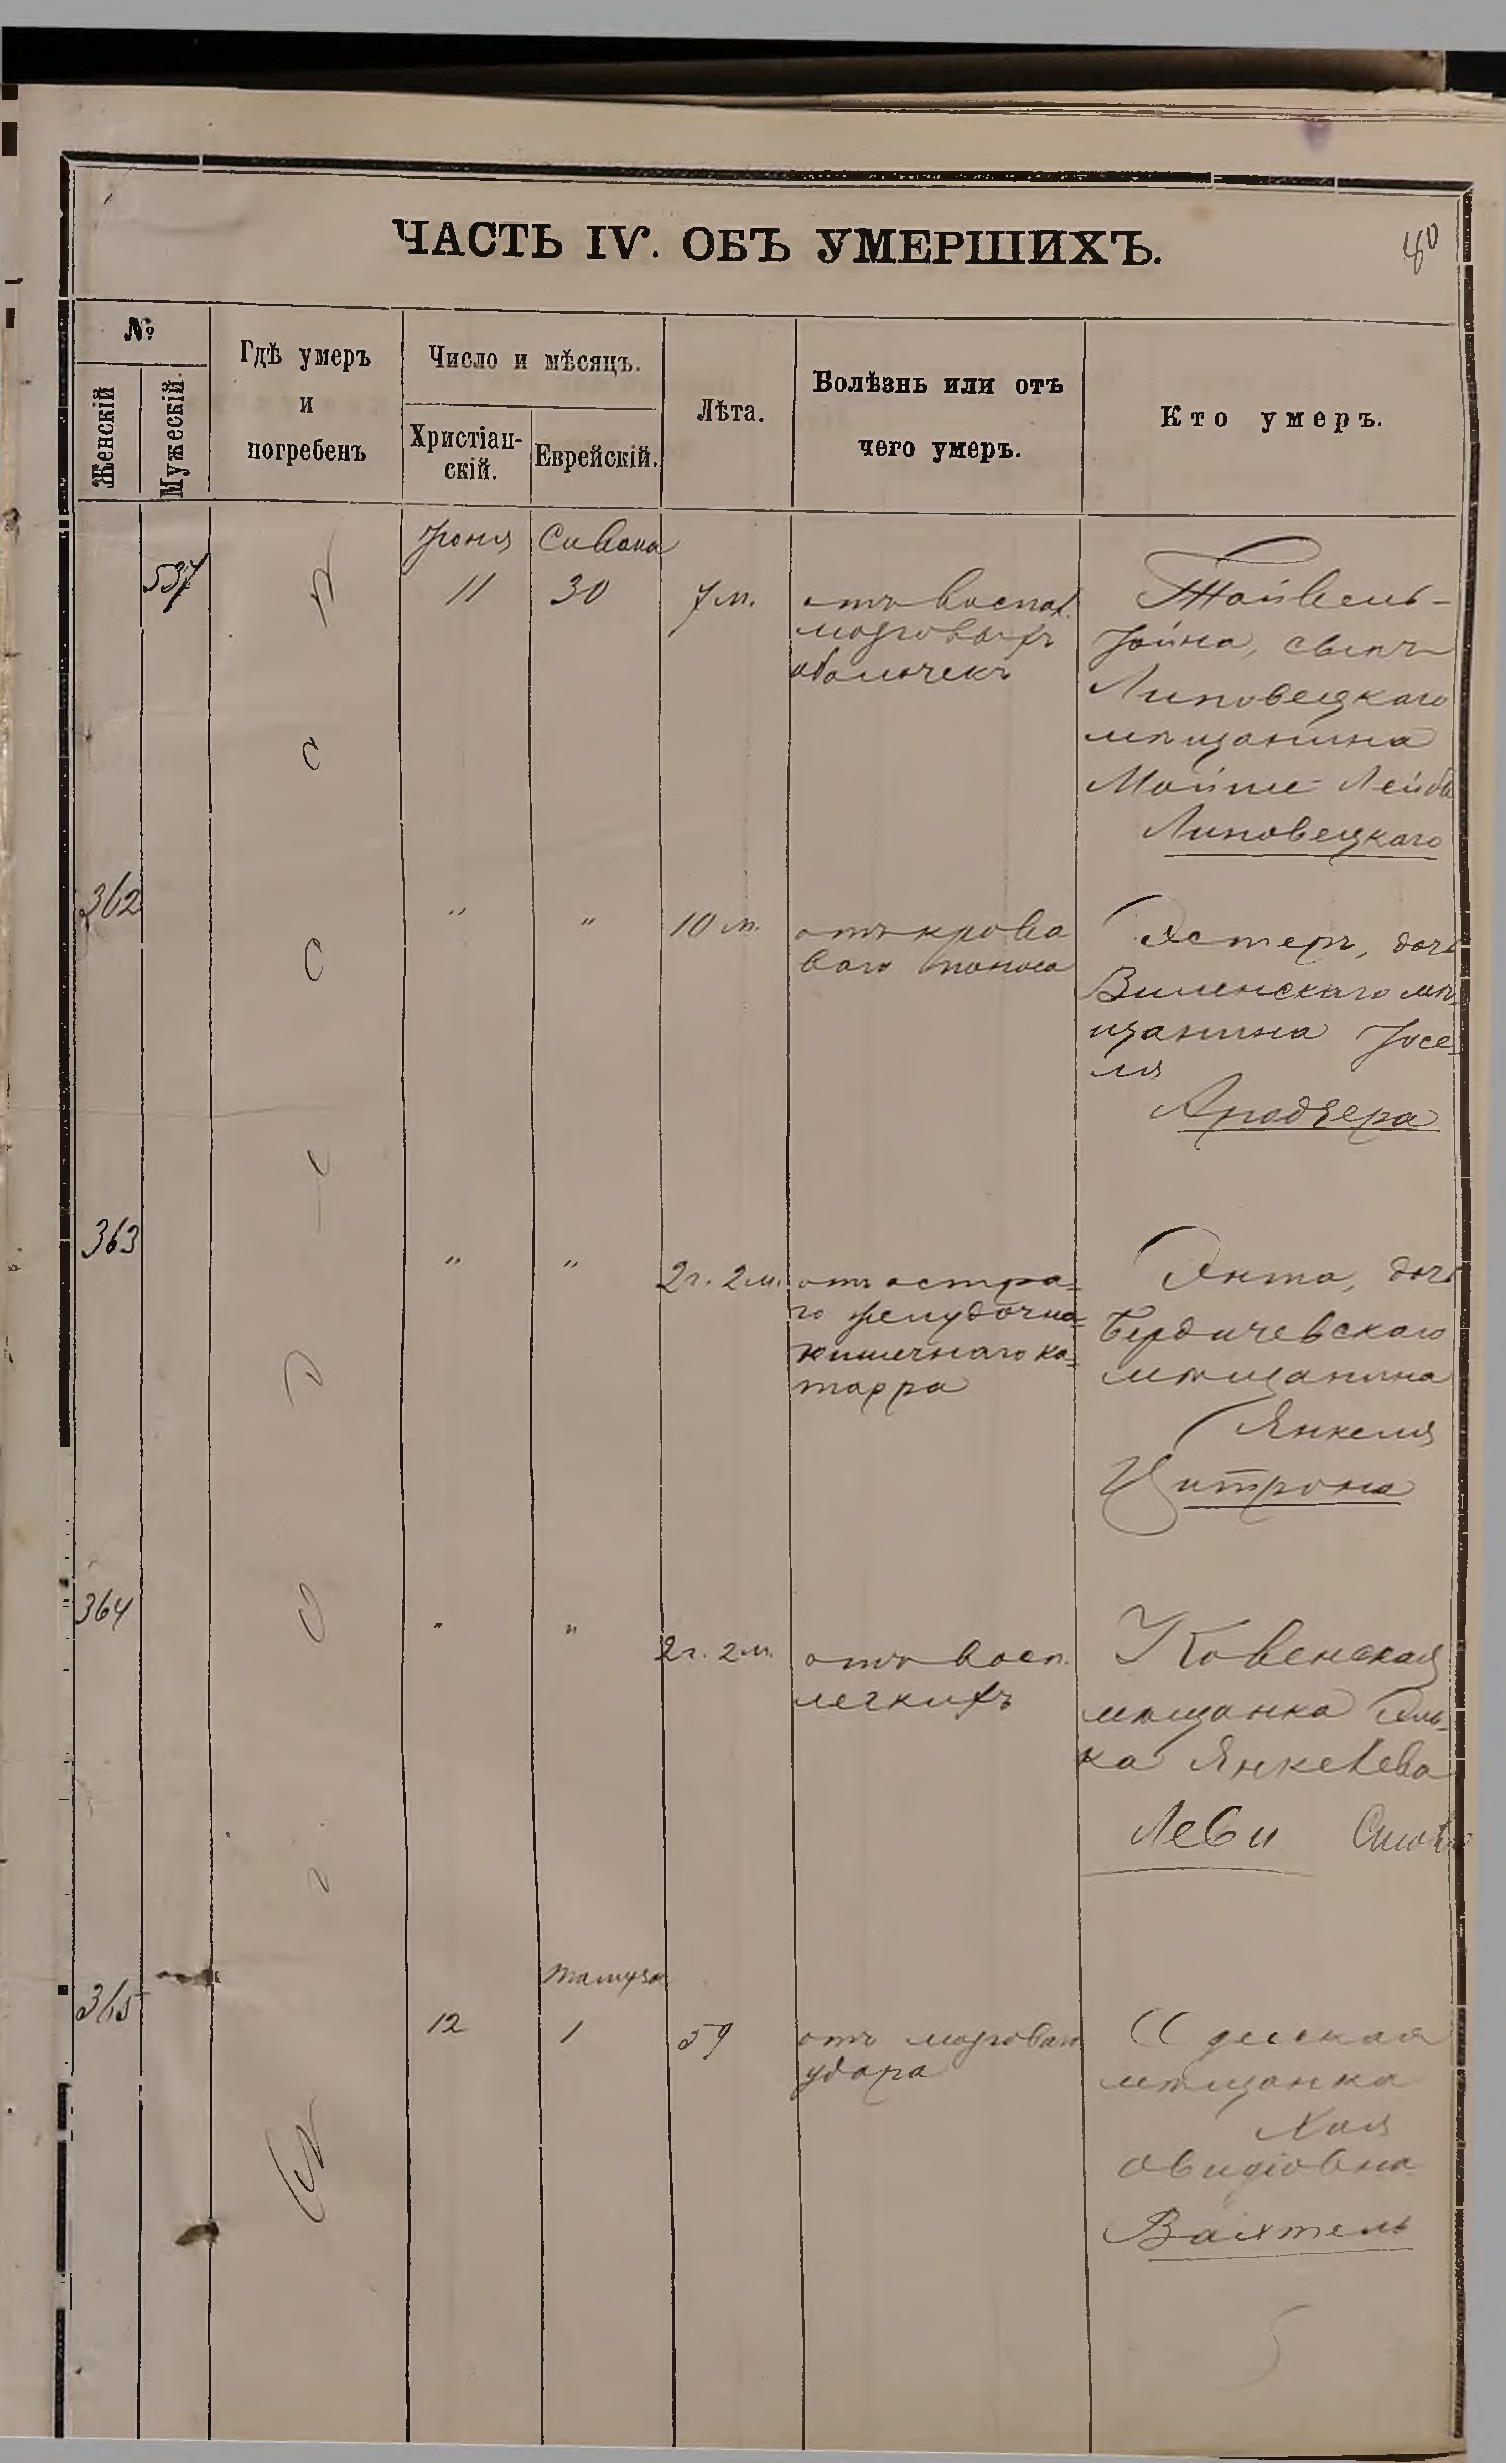 ЧАСТЬ IV. ОБЪ УМЕРШИХЪ.
40
№
Женскій
Мужескій.
Гдѣ умеръ
и
погребенъ
Число и мѣсяцъ.
Христіан-
скій.
Еврейскій.
Лѣта.
Болѣзнь или отъ
чего умеръ.
Кто умеръ.
Іюня
Сивана
537
11
30
7 м.
отъ воспал.
мозговыхъ
оболочекъ
Тойвель-
Іойна, сынъ
Липовецкаго
мѣщанина
Мойше-Лейба
Липовецкаго
О
362
"
"
10 м.
отъ крова
ваго поноса
Эстеръ, дочь
Виленскаго мѣ-
щанина Іосе-
ля
С
363
"
"
2 г. 2 м.
отъ остра-
го желудочно-
кишечнаго ка-
тарра
Энта, дочь
Бердичевскаго
мѣщанина
Янкеля
Цитрона
Д
364
"
"
2 г. 2 м.
отъ восп.
легкихъ
Ковенская
мѣщанка Эль-
ка Янкелева
Леви
О
365
12
Тамуза
1
59
отъ мозговаго
удара
Одесская
мѣщанка
Хая
Овидіовна
Вахтель